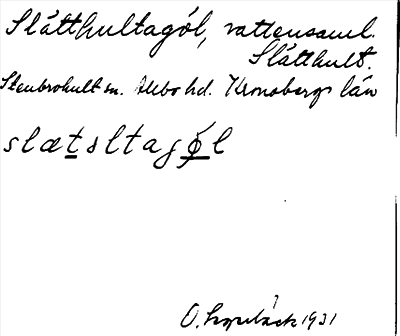 Slätthultagöl, vattensaml.
Slätthult.
Stenbrohult sn. Allbo hd. Kronobergs län
slætsltagøl
O. 1931